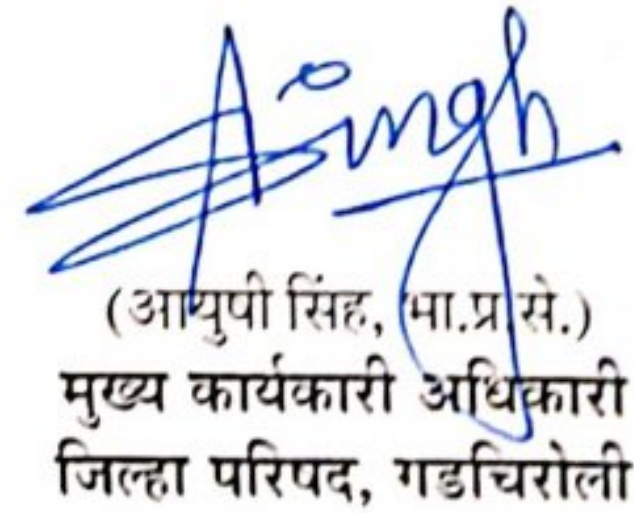 Asingh
(आयुषी सिंह, भा.प्र.से.)
मुख्य कार्यकारी अधिकारी
जिल्हा परिषद, गडचिरोली